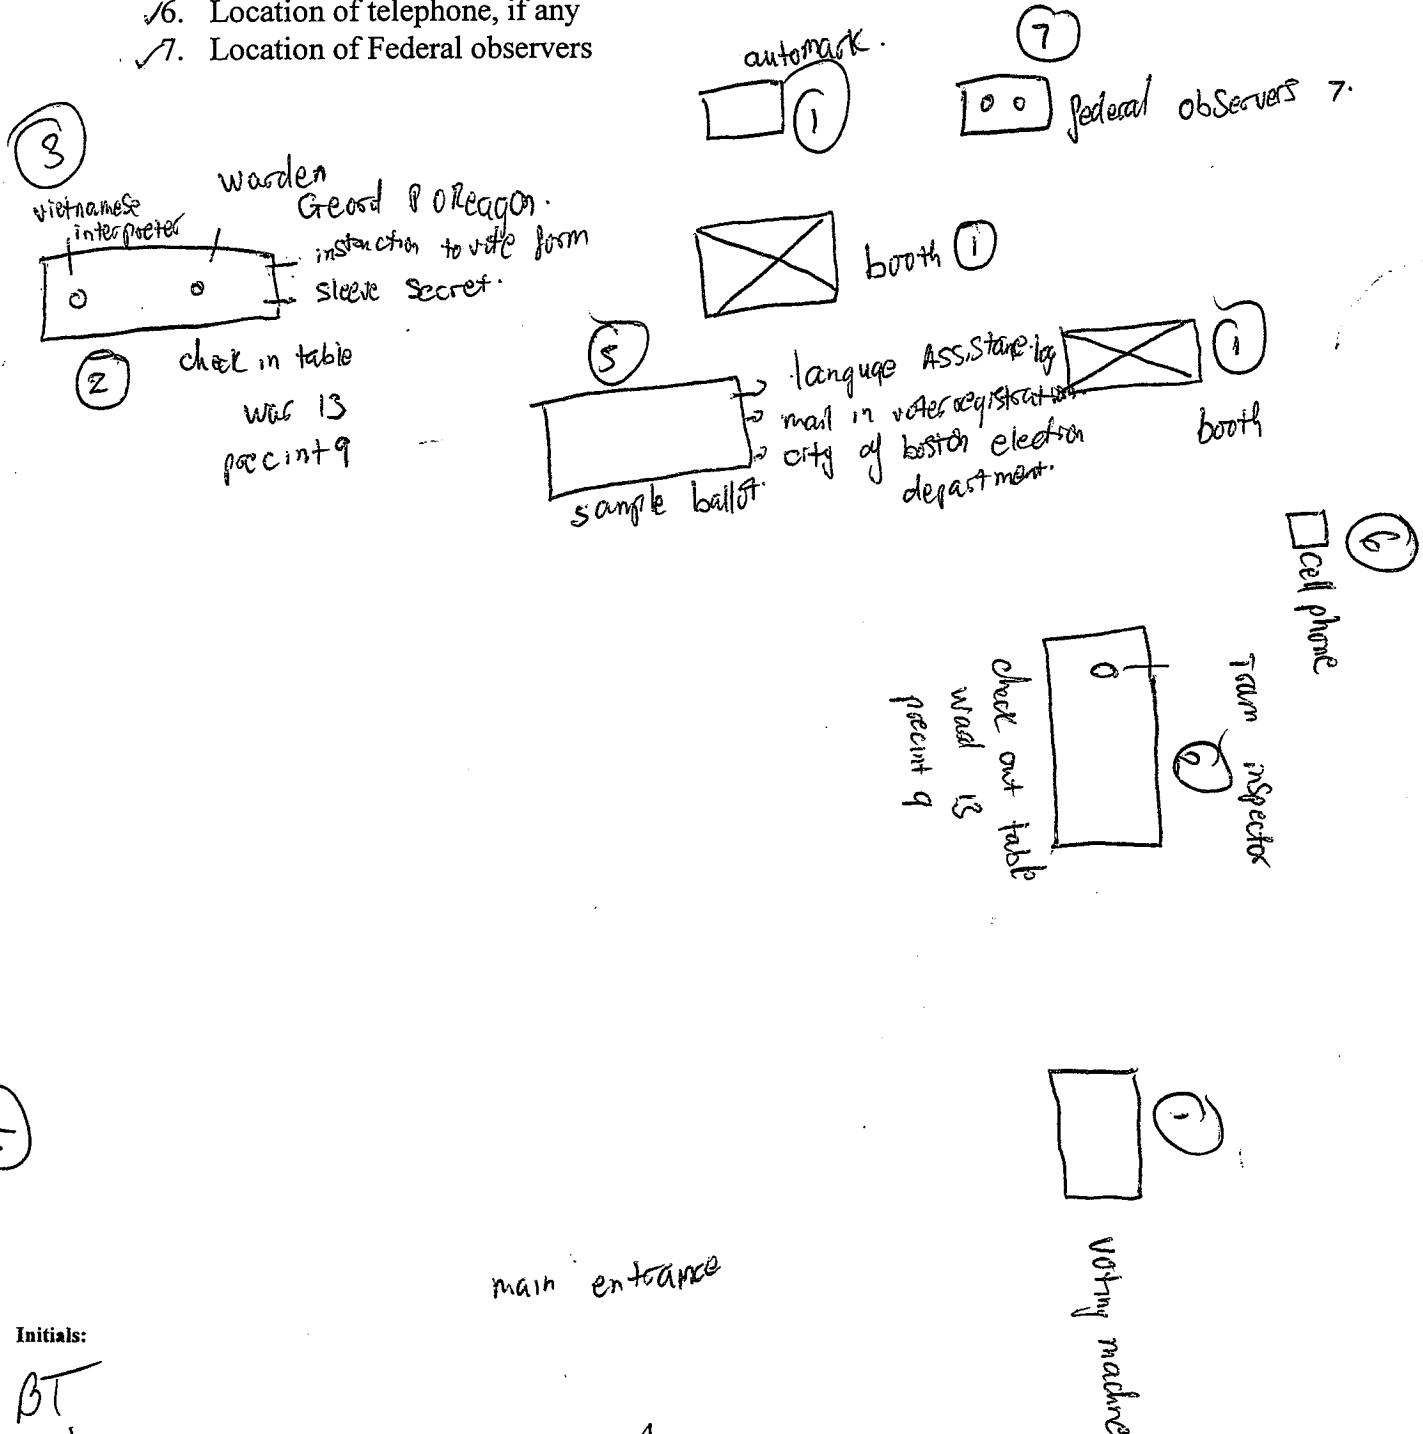 ✓6. Location of telephone, if any
✓7. Location of Federal observers
automark.
1
7
federal observers 7.
3
vietnamese
interpreter
warden
Geord P OReagon.
instenction to vote form
sleeve secret.
2
check in table
war 13
precint 9
booth 1
5
languge Assistane log
mail in voter registration
city of boston election
department.
sample ballot.
1
booth
6
cell phone
Tram inspector
2
check out table
wad 13
precint 9
1
voting machine
main entrance
Initials:
BT